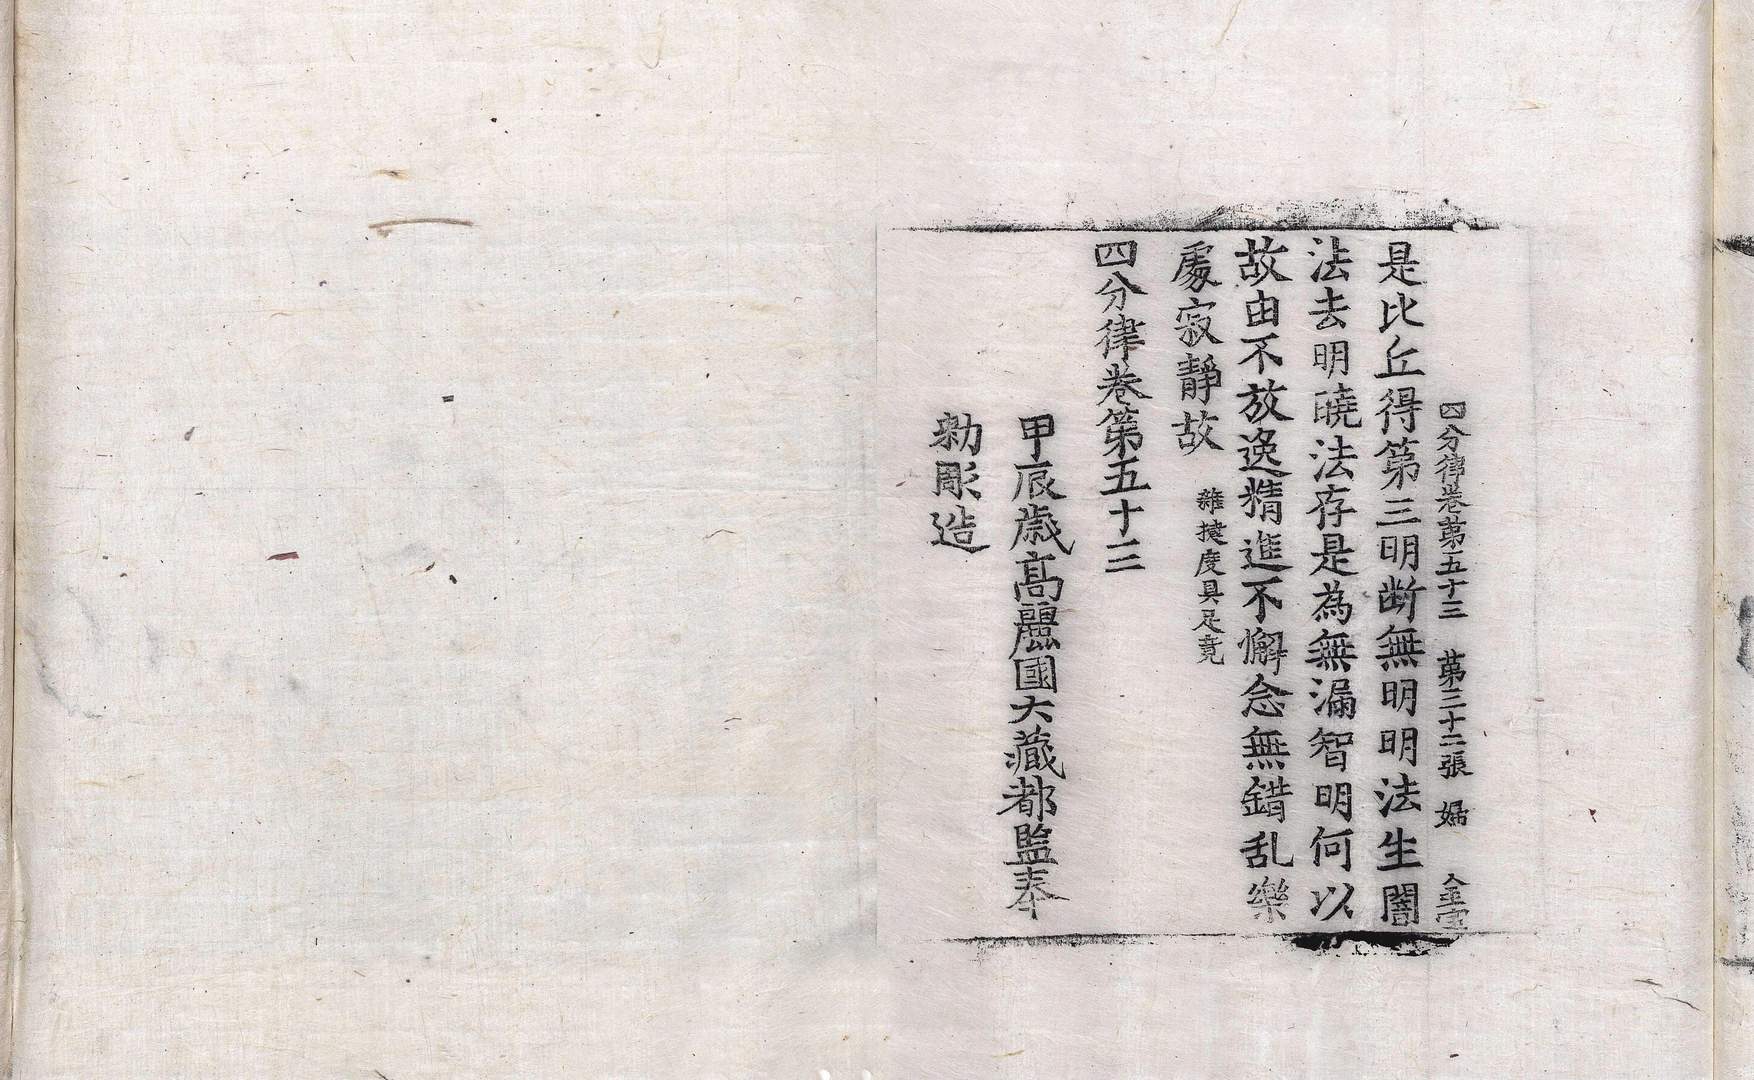 四分律卷第五十三　第三十二張　婦
是比丘得第三明断無明明法生闇
法去明曉法存是為無漏智明何以
故由不放逸精進不懈念無錯乱樂
處寂靜故　雜揵度具足竟
四分律卷第五十三
甲辰歲高麗國大藏都監奉
勑彫造